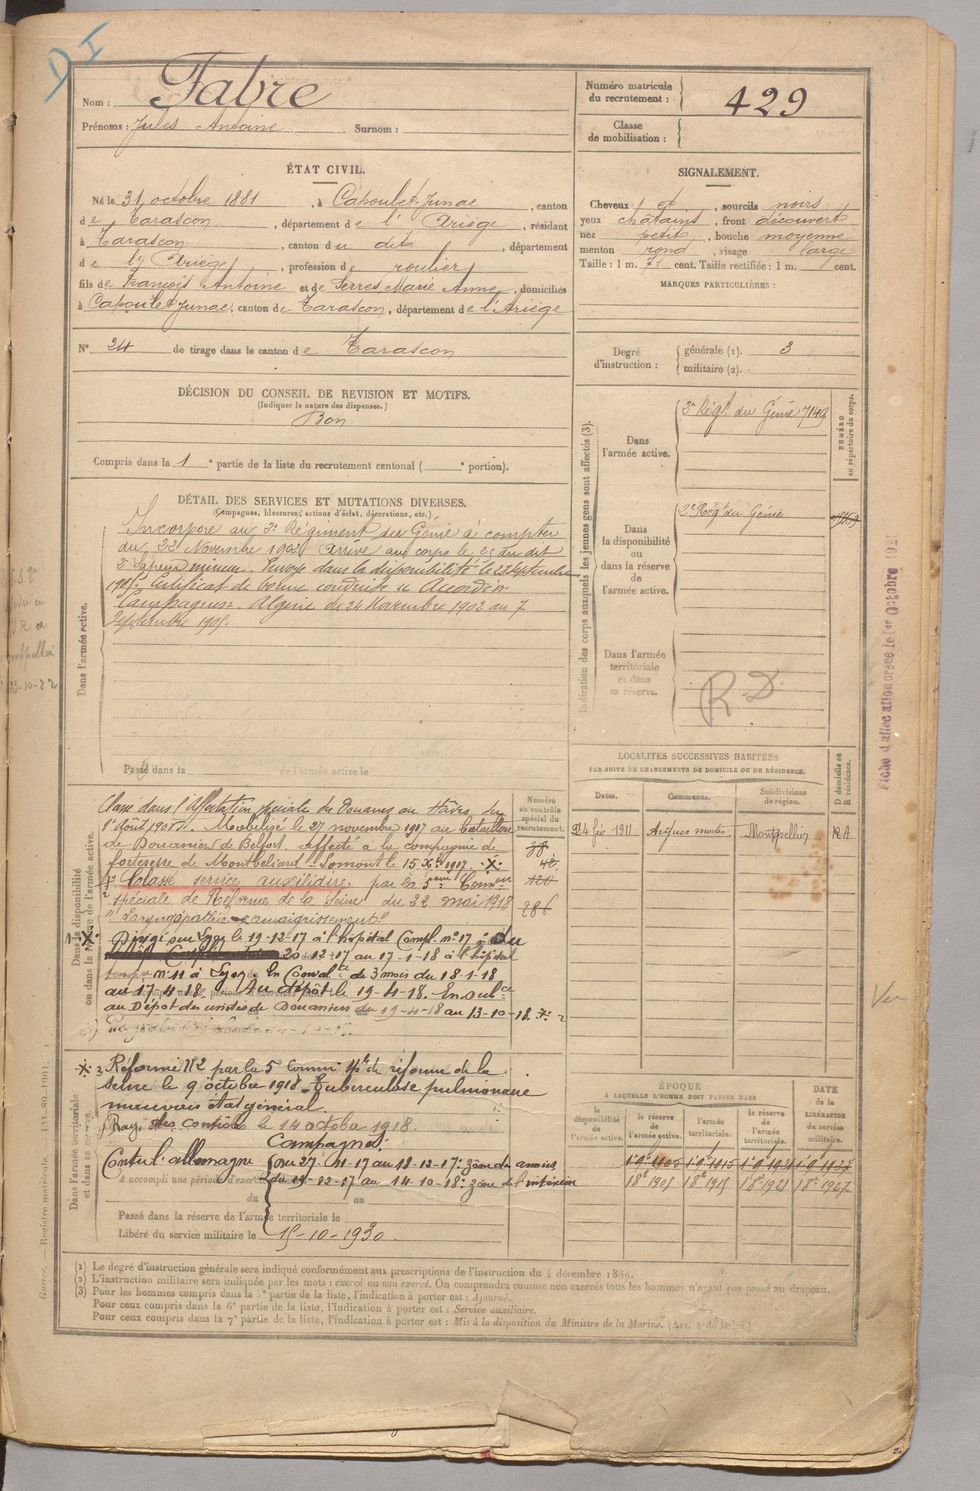 D I
Nom : Fabre
Prénoms : Jules Antoine Surnom :
Numéro matricule
du recrutement : 429
Classe
de mobilisation :
ÉTAT CIVIL.
Né le 31 octobre 1881, à Capoulet-Junac, canton
de Tarascon, département de l'Ariège, résidant
à Tarascon, canton du dit, département
de l'Ariège, profession de roulier
fils de François Antoine et de Serres Marie Anne, domiciliés
à Capoulet-Junac, canton de Tarascon, département de l'Ariège
N° 24 de tirage dans le canton de Tarascon
SIGNALEMENT.
Cheveux et, sourcils noirs
yeux châtains, front découvert
nez petit, bouche moyenne
menton rond, visage large
Taille : 1 m. 71 cent. Taille rectifiée : 1 m. cent.
MARQUES PARTICULIÈRES :
Degré
d'instruction :
générale (1). 3
militaire (2).
DÉCISION DU CONSEIL DE REVISION ET MOTIFS.
(Indiquer la nature des dispenses.)
Bon
Compris dans la 1e partie de la liste du recrutement cantonal ( e portion).
DÉTAIL DES SERVICES ET MUTATIONS DIVERSES.
(Campagnes, blessures, actions d'éclat, décorations, etc.)
Dans l'armée active.
Incorporé au 3e Régiment du Génie à compter
du 22 Novembre 1902. Arrivé au corps le du dit
2e Sapeur mineur. Envoyé dans la disponibilité le Septembre
1905. Certificat de bonne conduite Accordé.
Campagnes: Algérie du 24 Novembre 1902 au 7
Septembre 1905.
Passé dans la de l'armée active le
Indication des corps auxquels les jeunes gens sont affectés (3).
NUMÉRO
au répertoire du corps.
Dans
l'armée active.
3e Régt du Génie 7149
Dans
la disponibilité
ou
dans la réserve
de
l'armée active.
2e Régt du Génie
Dans l'armée
territoriale
et dans
sa réserve.
R D
Fiche d'affectation créée le 1er Octobre
Dans la disponibilité
ou dans la réserve de l'armée active.
Classé dans l'Affectation spéciale des Douanes au
1er Août 1905. Mobilisé le 27 novembre 1917 au Bataillon
de Douaniers de Belfort. affecté à la compagnie de
forteresse de Montbéliard - Lomont le 15 Xbre 1917. X
Classé service auxiliaire, par la 5eme Comon
spéciale de Réforme de la Seine du 22 mai 1918
"Laryngopathie amaigrissement"
1 X Dirigé sur Lyon le 19-12-17 à l'hôpital Compl. n° 17 : Du
20-12-17 au 17-1-18 à l'hôpital
n° 11 à Lyon. En Convalce de 3 mois du 18-1-18
au 17-4-18. Au dépôt le 19-4-18. En subce
au Dépôt des unités de Douaniers du 19-4-18 au 13-10-18. X 2
Numéro
au contrôle
spécial du
recrutement.
286
LOCALITÉS SUCCESSIVES HABITÉES
PAR SUITE DE CHANGEMENTS DE DOMICILE OU DE RÉSIDENCE.
Dates. Communes. Subdivisions
de région. D domicile ou
R résidence.
24 fév 1911 Aigues mortes Montpellier RA
Dans l'armée territoriale
et dans sa réserve.
X 3 Réformé N°2 par la 5 Commn sple de réforme de la
Seine le 9 octobre 1918. Tuberculose pulmonaire
mauvais état général.
Rayé des contrôles le 14 octobre 1918.
Campagnes:
Contre l'allemagne du 27-11-17 au 18-12-17 : zone des armées
du 19-12-17 au 14-10-18 : zone de l'intérieur
A accompli une période d'exercices
du au
Passé dans la réserve de l'armée territoriale le
Libéré du service militaire le 15-10-1930.
ÉPOQUE
A LAQUELLE L'HOMME DOIT PASSER DANS
la
disponibilité
de
l'armée active.
la réserve
de
l'armée active.
l'armée
territoriale.
la réserve
de
l'armée
territoriale.
DATE
de la
LIBÉRATION
du service
militaire.
1 9 1905 1 9 1915 1 9 1921 1 9 1927
18bre 1905 18bre 1915 18bre 1921 18bre 1927
(1) Le degré d'instruction générale sera indiqué conformément aux prescriptions de l'instruction du 4 décembre 1889.
(2) L'instruction militaire sera indiquée par les mots : exercé ou non exercé. On comprendra comme non exercés tous les hommes n'ayant pas passé au drapeau.
(3) Pour les hommes compris dans la 5e partie de la liste, l'indication à porter est : Ajourné.
Pour ceux compris dans la 6e partie de la liste, l'indication à porter est : Service auxiliaire.
Pour ceux compris dans la 7e partie de la liste, l'indication à porter est : Mis à la disposition du Ministre de la Marine.